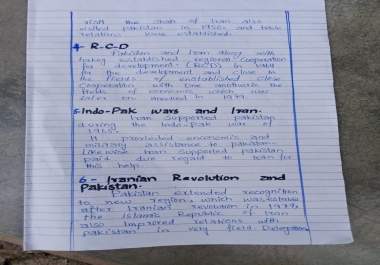 visit the Shah of Iran also
visited Pakistan in 1950s and trade
relations were established.
4 R-C-D
Pakistan and Iran along with
turkey established regional Cooperation
for development (RCD) in 1964
for the development and close in
the fields of enstablished close
Cooperation with one another in the
fields of economic which was
later on dissolved in 1979.
5. Indo-Pak wars and Iran-
Iran supported pakistan
during the Indo-Pak war of
1965.
It provided economic and
military assistance to pakistan-
likewise Iran supported pakistan
paid due regard to Iran for
this help.
6- Iranian Revolution and
Pakistan-
Pakistan extended recognition
to new region, which was
after Iranian revolution in 1979
the Islamic Republic of Iran
also improved relations with
pakistan in very field. Delegation